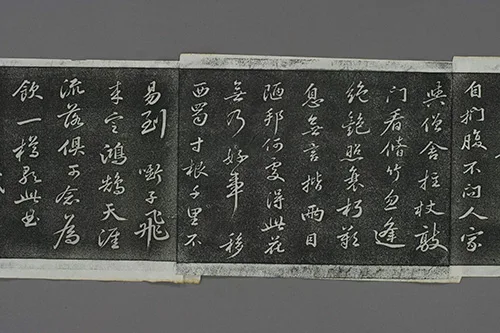 自捫腹不問人家
與僧舍拄杖敲
門看脩竹忽逢
絕艷照衰朽歎
息無言揩兩目
陋邦何處得此花
無乃好事移
西蜀寸根千里不
易到銜子飛
來定鴻鵠天涯
流落俱可念為
飲一樽歌此曲